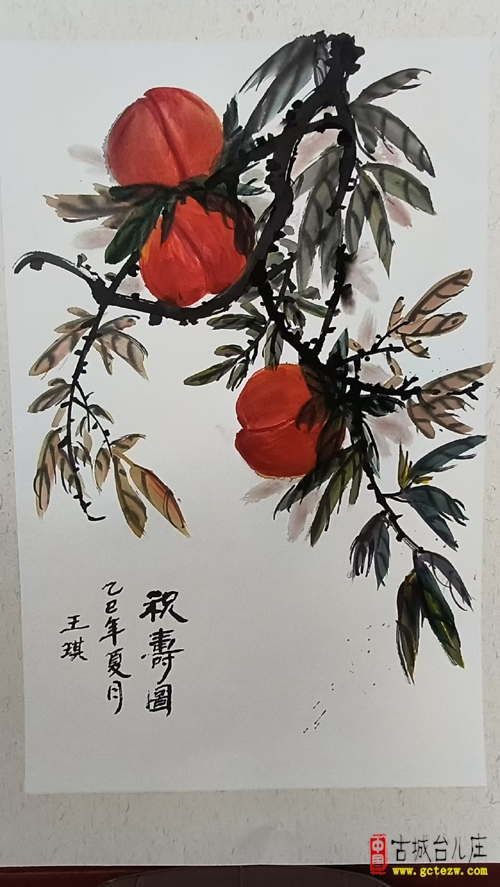 祝壽圖
乙巳年夏月
王琪
中国
古城台儿庄
www.gctezw.com